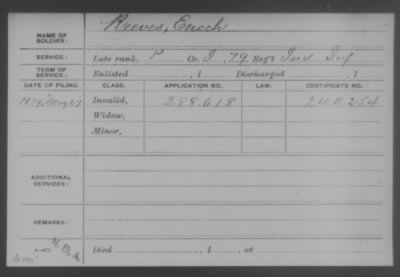 Reeves, Enoch
NAME OF SOLDIER:
SERVICE: Late rank, P Co. I, 79 Reg't Ind Inf
TERM OF SERVICE: Enlisted , 1 Discharged , 1
DATE OF FILING. CLASS. APPLICATION NO. LAW. CERTIFICATE NO.
1879, May 27 Invalid, 288.618 240254
Widow,
Minor,
ADDITIONAL SERVICES:
REMARKS:
Died , 1 , at